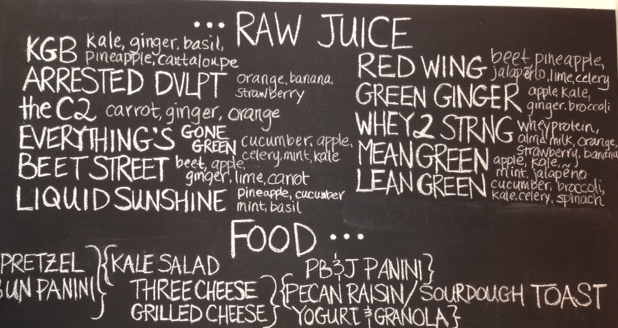 ... RAW JUICE
KGB kale, ginger, basil, pineapple, cantaloupe
ARRESTED DVLPT orange, banana, strawberry
the C2 carrot, ginger, orange
EVERYTHING'S GONE GREEN cucumber, apple, celery, mint, kale
BEET STREET beet, apple, ginger, lime, carrot
LIQUID SUNSHINE pineapple, cucumber mint, basil
RED WING beet, pineapple, jalapeño, lime, celery
GREEN GINGER apple kale, ginger, broccoli
WHEY 2 STRNG whey protein, almd milk, orange, strawberry, banana
MEAN GREEN apple, kale, mint, jalapeño
LEAN GREEN cucumber, broccoli, kale, celery, spinach
FOOD ...
PRETZEL BUN PANINI } { KALE SALAD
THREE CHEESE GRILLED CHEESE }
PB&J PANINI }
{ PECAN RAISIN / SOURDOUGH TOAST
YOGURT & GRANOLA }